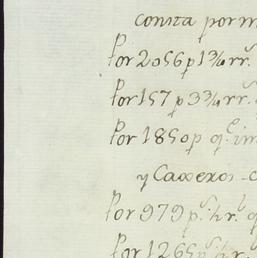 consta por m
Por 2056 p 1 3/4 rr.
Por 157 p 3 3/4 rr.
Por 1850 p q.e im
y Caxeros
Por 979 p.s 1/2 r. q
Por 1265 p.s 1/2 r.